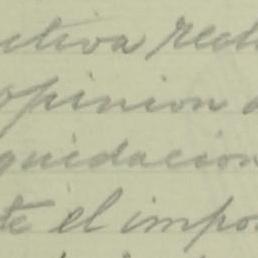 ctiva rect
opinion
quidacion
te el impo